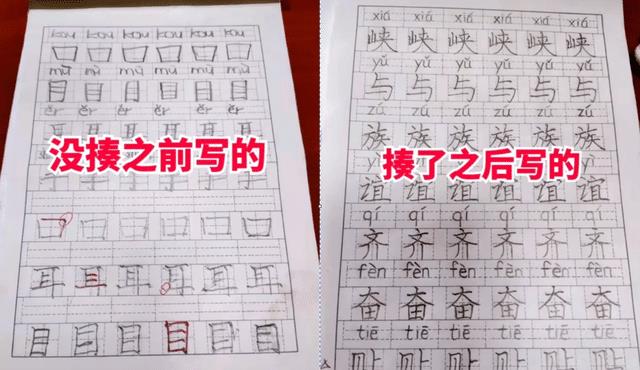 kou kou kou kou kou kou
口 口 口 口 口 口
mù mù mù mù mù mù
目 目 目 目 目 目
ěr ěr ěr ěr ěr ěr
耳 耳 耳 耳 耳 耳
没揍之前写的
口 口 口 口 口 口
耳 耳 耳 耳 耳 耳
目 目 目 目 目 目
xiá xiá xiá xiá xiá xiá
峡 峡 峡 峡 峡 峡
yǔ yǔ yǔ yǔ yǔ yǔ
与 与 与 与 与 与
zú zú zú zú zú zú
族 族 族 族 族 族
揍了之后写的
谊 谊 谊 谊 谊 谊
qí qí qí qí qí qí
齐 齐 齐 齐 齐 齐
fèn fèn fèn fèn fèn fèn
奋 奋 奋 奋 奋 奋
tiē tiē tiē tiē tiē tiē
贴 贴 贴 贴 贴 贴